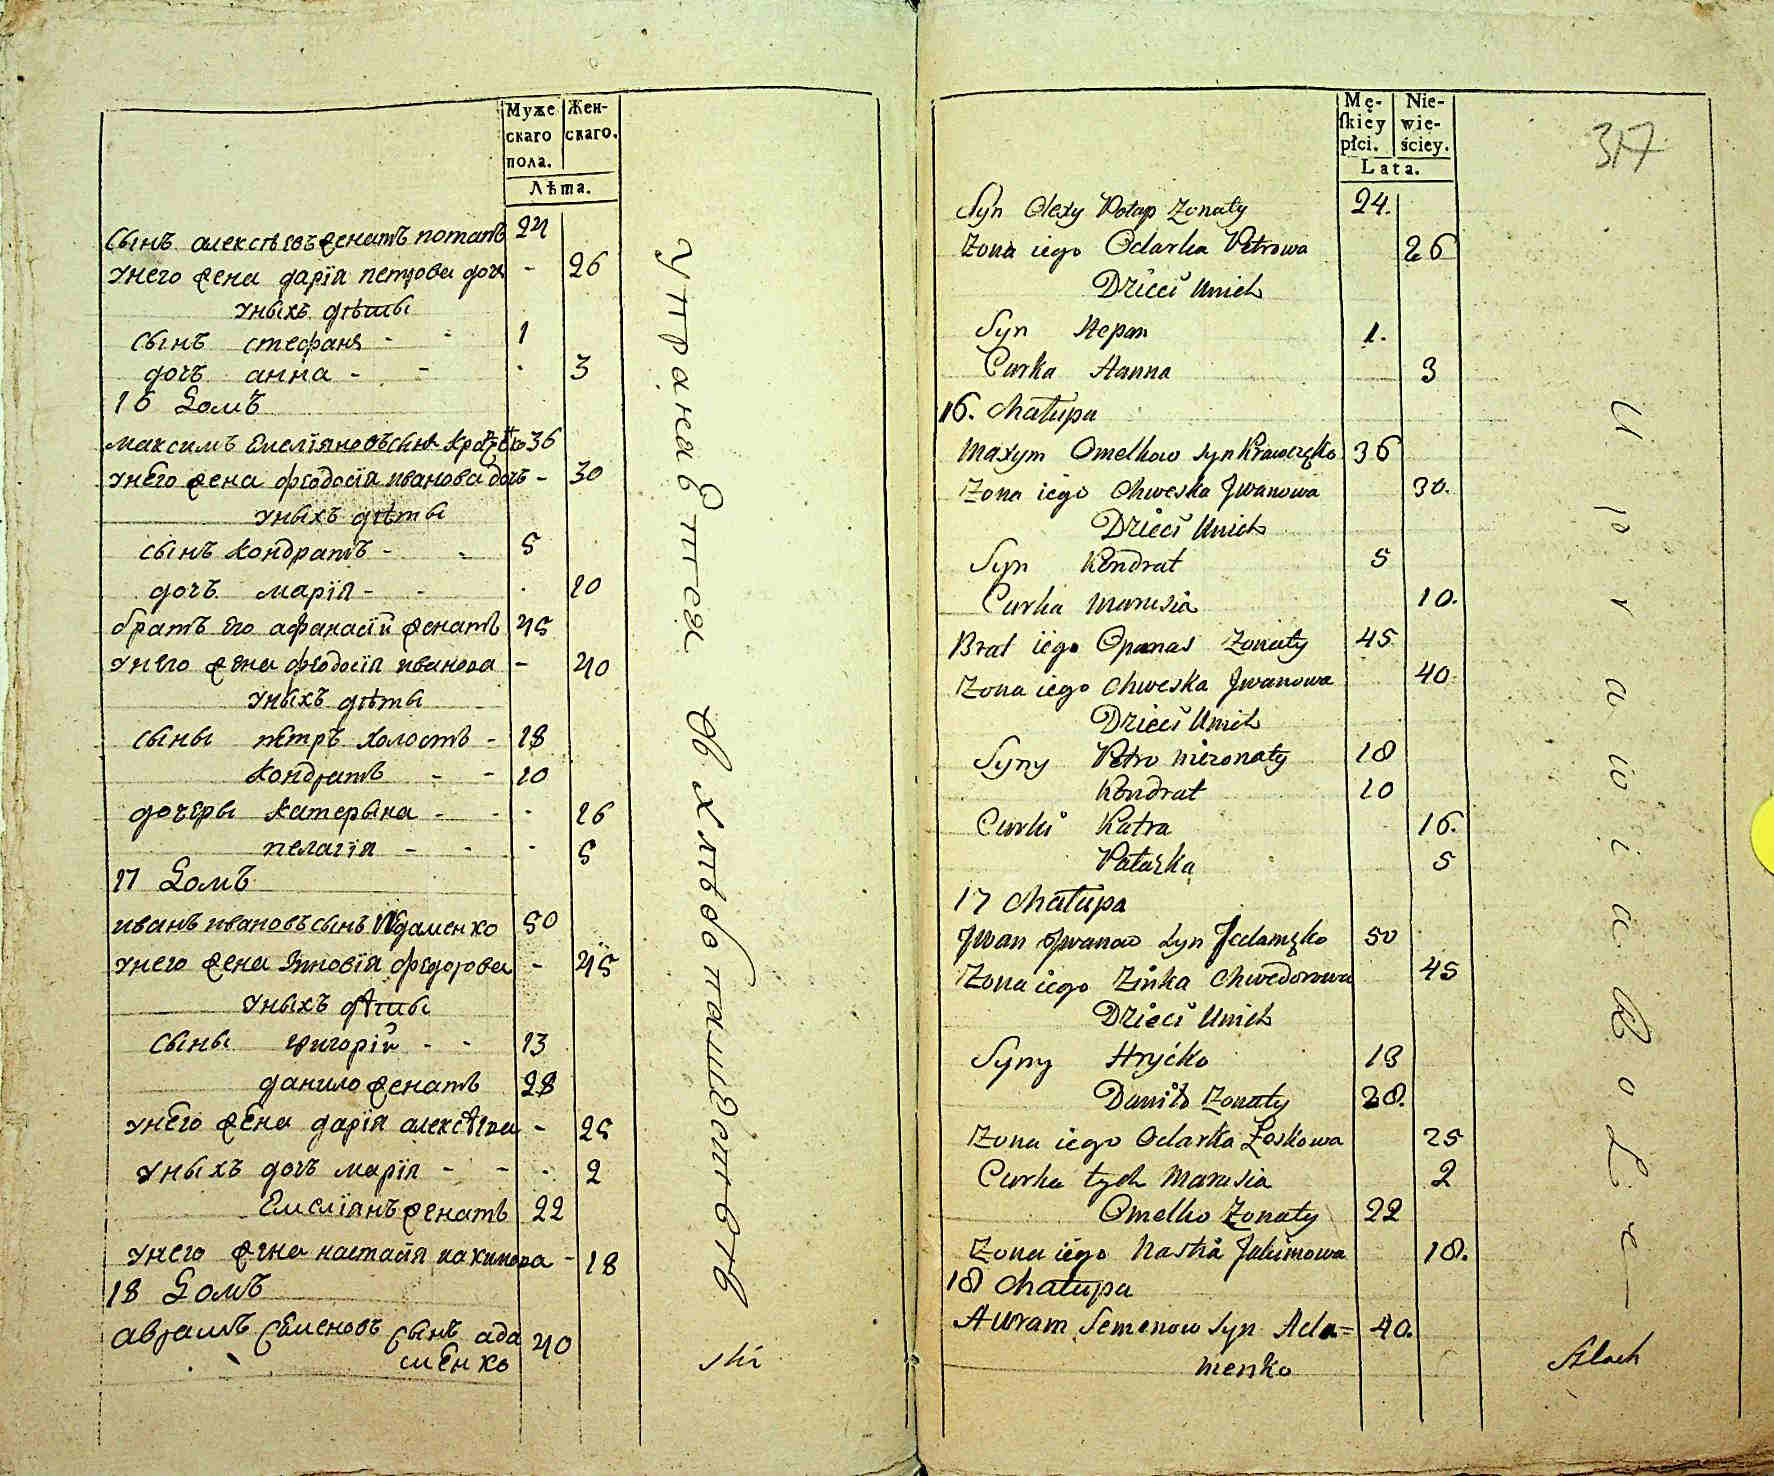 Муже Жен-
скаго скаго.
пола.
Лѣта.
Сынъ алексѣевъ женатъ потапъ 24
унего жена дарїя петрова дочъ - 26
уныхъ дѣты
сынъ стефанъ - - 1
дочъ анна - - - 3
16 Домъ
максимъ Емелїяновъ сынъ 36
унего жена феодосїя иванова дочъ - 30
уныхъ дѣты
сынъ Кондратъ - - 5
дочъ марїя - - - 10
братъ Его афанасїй женатъ 45
унего жена феодосїя иванова - 40
уныхъ дѣты
сыны петръ холостъ - 18
Кондратъ - - 10
дочеры Катерына - - - 16
пелагїя - - - 5
17 Домъ
иванъ ивановъ сынъ 50
унего жена Зиновїя федорова - 45
уныхъ дѣты
сыны григорїй - - 13
данило женатъ 28
унего жена дарїя алексѣева - 25
уныхъ дочъ марїя - - - 2
Емелїанъ женатъ 22
унего жена настасїя иакимова - 18
18 Домъ
аврамъ Семеновъ сынъ ада 40
менко
упражняется въ хлѣбопашествѣ
ski
Mę- Nie-
skiey wie-
płci. ściey.
Lata.
317
Syn Olexy Potap Zonaty 24.
Zona iego Odarka Petrowa 26
Dzieci Unich
Syn Stepan 1.
Curka Hanna 3
16. Chałupa
Maxym Omelkow Syn Krawczęko 36
Zona iego Chweska Jwanowa 30.
Dzieci Unich
Syn Kondrat 5
Curka Marusia 10.
Brat iego Opanas Zonaty 45
Zona iego Chweska Jwanowa 40
Dzieci Unich
Syny Petro niezonaty 18
Kondrat 10
Curki Katra 16.
Pałazka 5
17 Chałupa
Jwan Jwanow Syn 50
Zona iego Zinka Chwedorowa 45
Dzieci Unich
Syny Hryćko 13
Daniło Zonaty 28.
Zona iego Odarka Łoskowa 25
Curka tych Marusia 2
Omelko Zonaty 22
Zona iego Nastia Jakimowa 18.
18 Chałupa
Awram Semenow Syn Ada= 40.
menko
Uprawia Role
Szlach